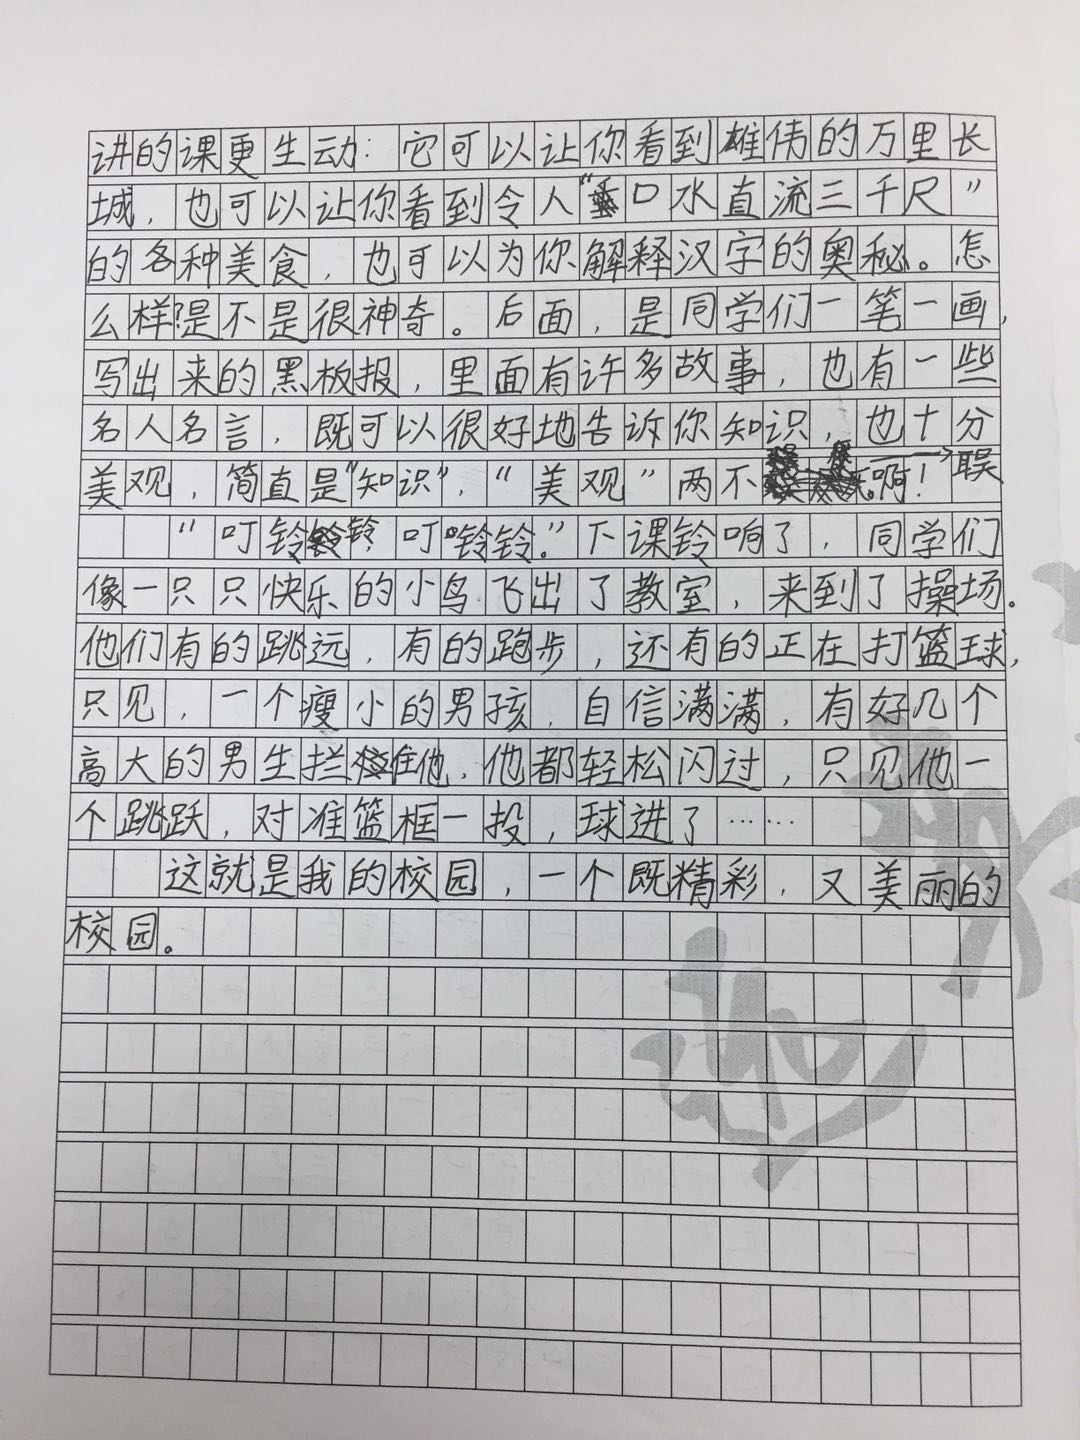 讲的课更生动：它可以让你看到雄伟的万里长
城，也可以让你看到令人“口水直流三千尺”
的各种美食，也可以为你解释汉字的奥秘。怎
么样？是不是很神奇。后面，是同学们一笔一画，
写出来的黑板报，里面有许多故事，也有一些
名人名言，既可以很好地告诉你知识，也十分
美观，简直是“知识”，“美观”两不误啊！
“叮铃铃，叮铃铃。”下课铃响了，同学们
像一只只快乐的小鸟飞出了教室，来到了操场。
他们有的跳远，有的跑步，还有的正在打篮球，
只见，一个瘦小的男孩，自信满满，有好几个
高大的男生拦住他，他都轻松闪过，只见他一
个跳跃，对准篮框一投，球进了……
这就是我的校园，一个既精彩，又美丽的
校园。